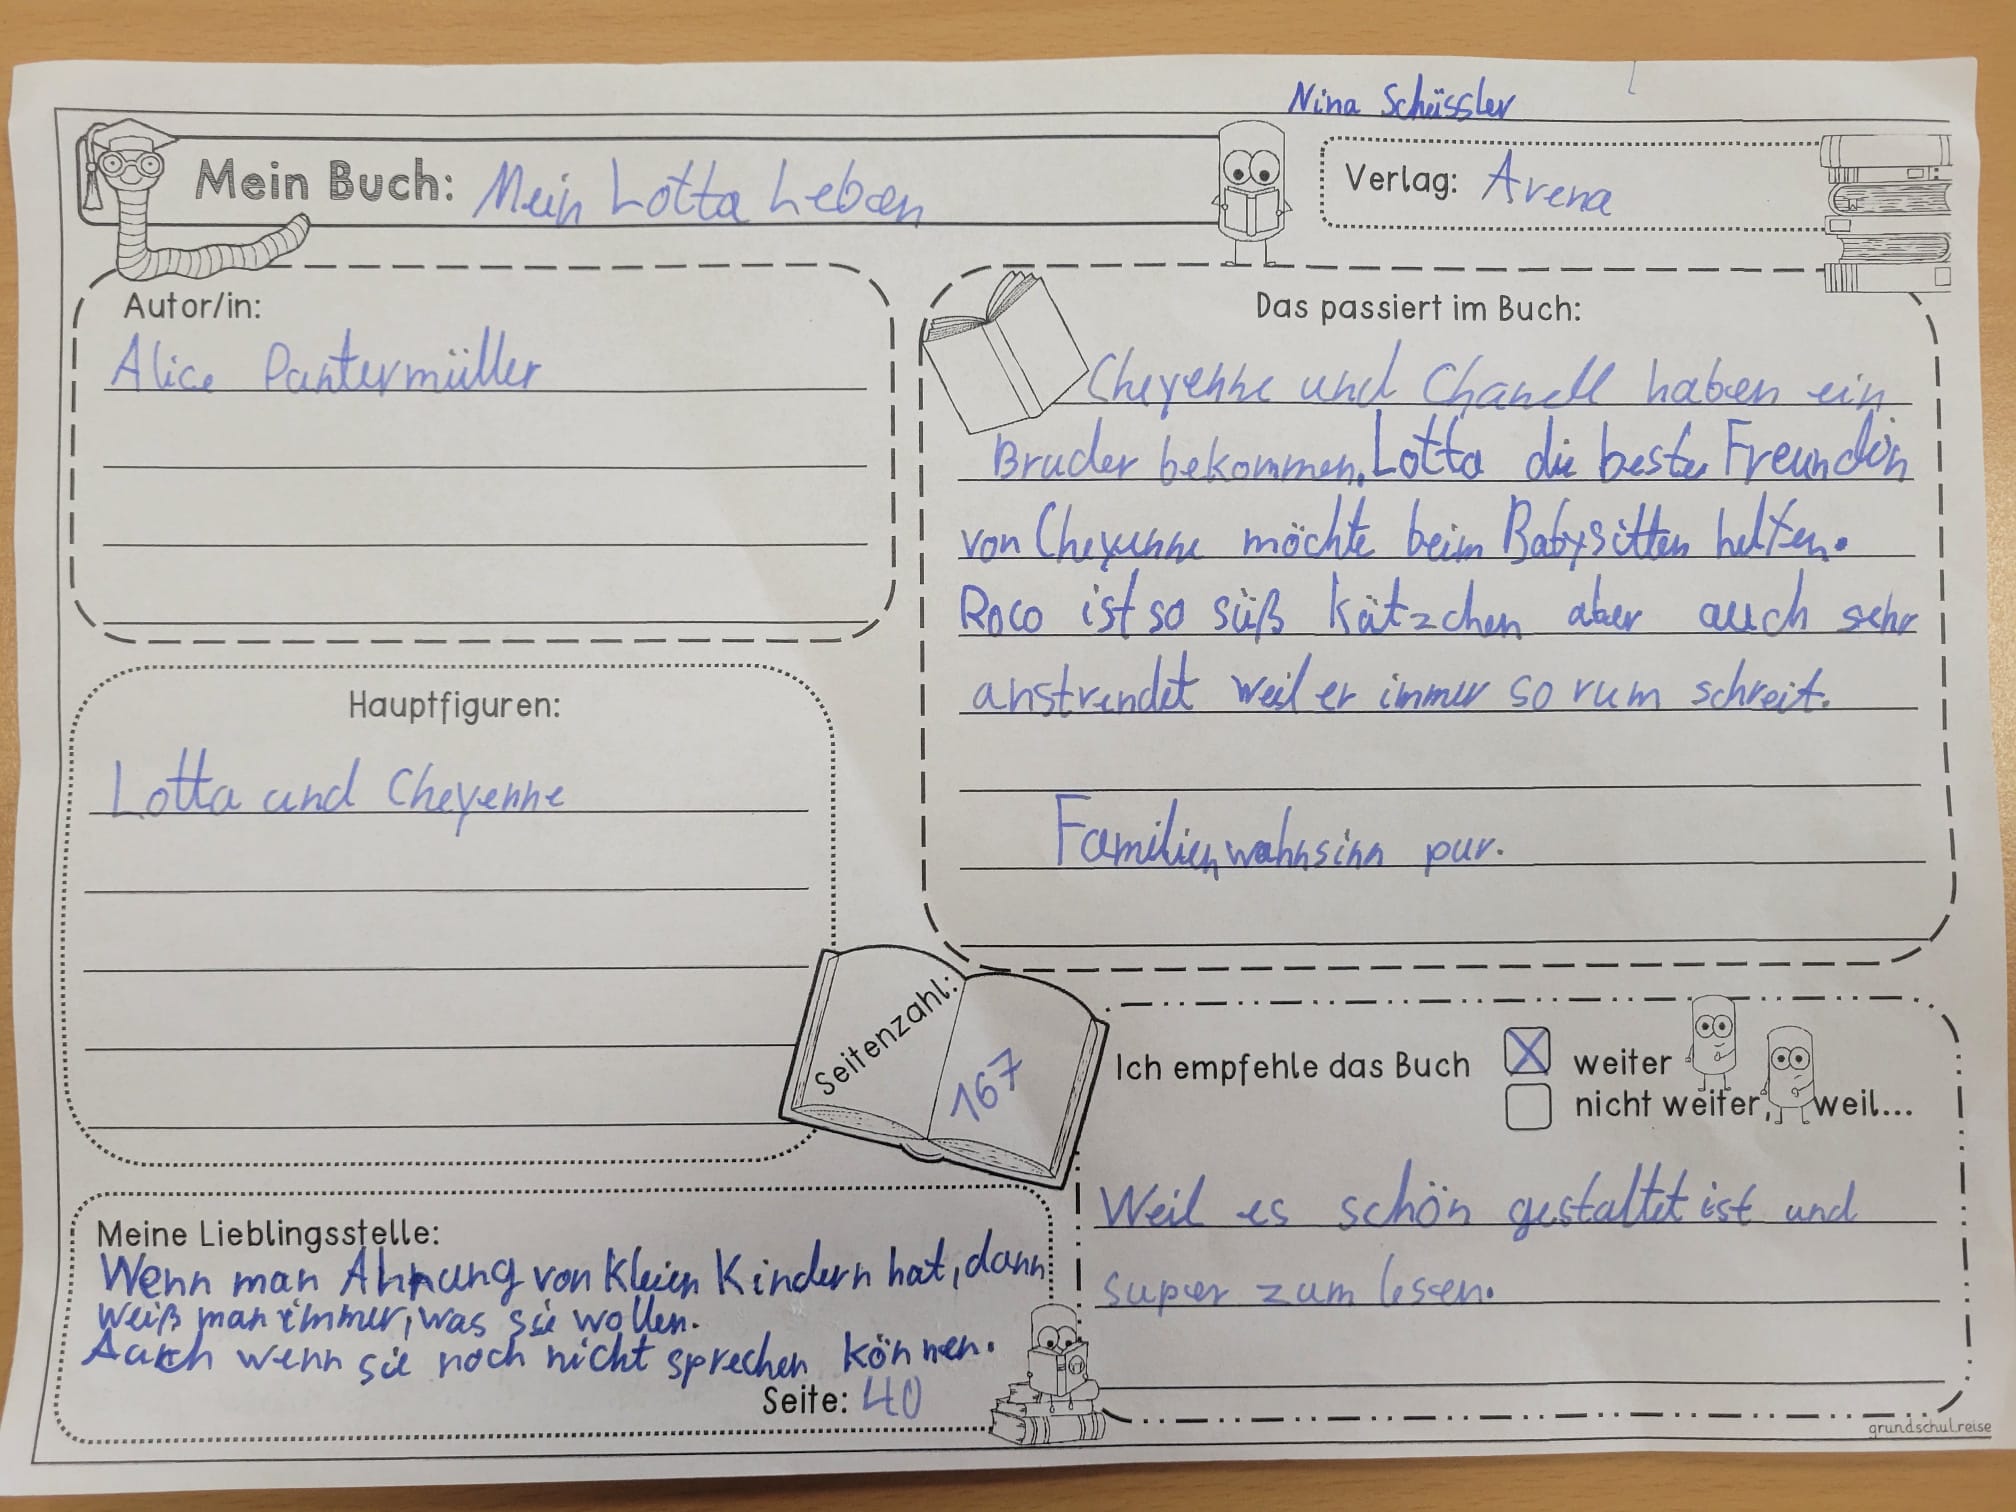 Nina Schüssler
Mein Buch: Mein Lotta Leben
Verlag: Arena
Autor/in:
Alice Pantermüller
Hauptfiguren:
Lotta und Cheyenne
Das passiert im Buch:
Cheyenne und Chanell haben ein
Bruder bekommen. Lotta die beste Freundin
von Cheyenne möchte beim Babysitten helfen.
Roco ist so süß kätzchen aber auch sehr
anstrendet weil er immer so rum schreit.
Familienwahnsinn pur.
Seitenzahl: 167
Meine Lieblingsstelle:
Wenn man Ahnung von kleien Kindern hat, dann
weiß man immer, was sie wollen.
Auch wenn sie noch nicht sprechen können.
Seite: 40
Ich empfehle das Buch
weiter
nicht weiter, weil...
Weil es schön gestaltet ist und
super zum lesen.
grundschulreise